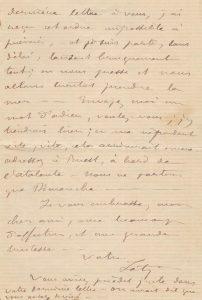 dernière lettre à vous, j'ai
reçu cet ordre impossible à
prévoir, et je suis parti, sans
délai, laissant brusquement
tout; on nous presse et nous
allons bientôt prendre la
mer — Envoyez moi un
mot d'adieu, voulez-vous, j'y
tiendrais bien; en me répondant
vite, vite, cela arriverait
adressez à Brest, à bord de
l'Atalante — Nous ne partons
que Dimanche —
Je vous embrasse, mon
cher ami, avec beaucoup
d'affection, et une grande
tristesse —
Votre
Loti
Vous aviez dans
votre dernière lettre — on avait dit que
vous